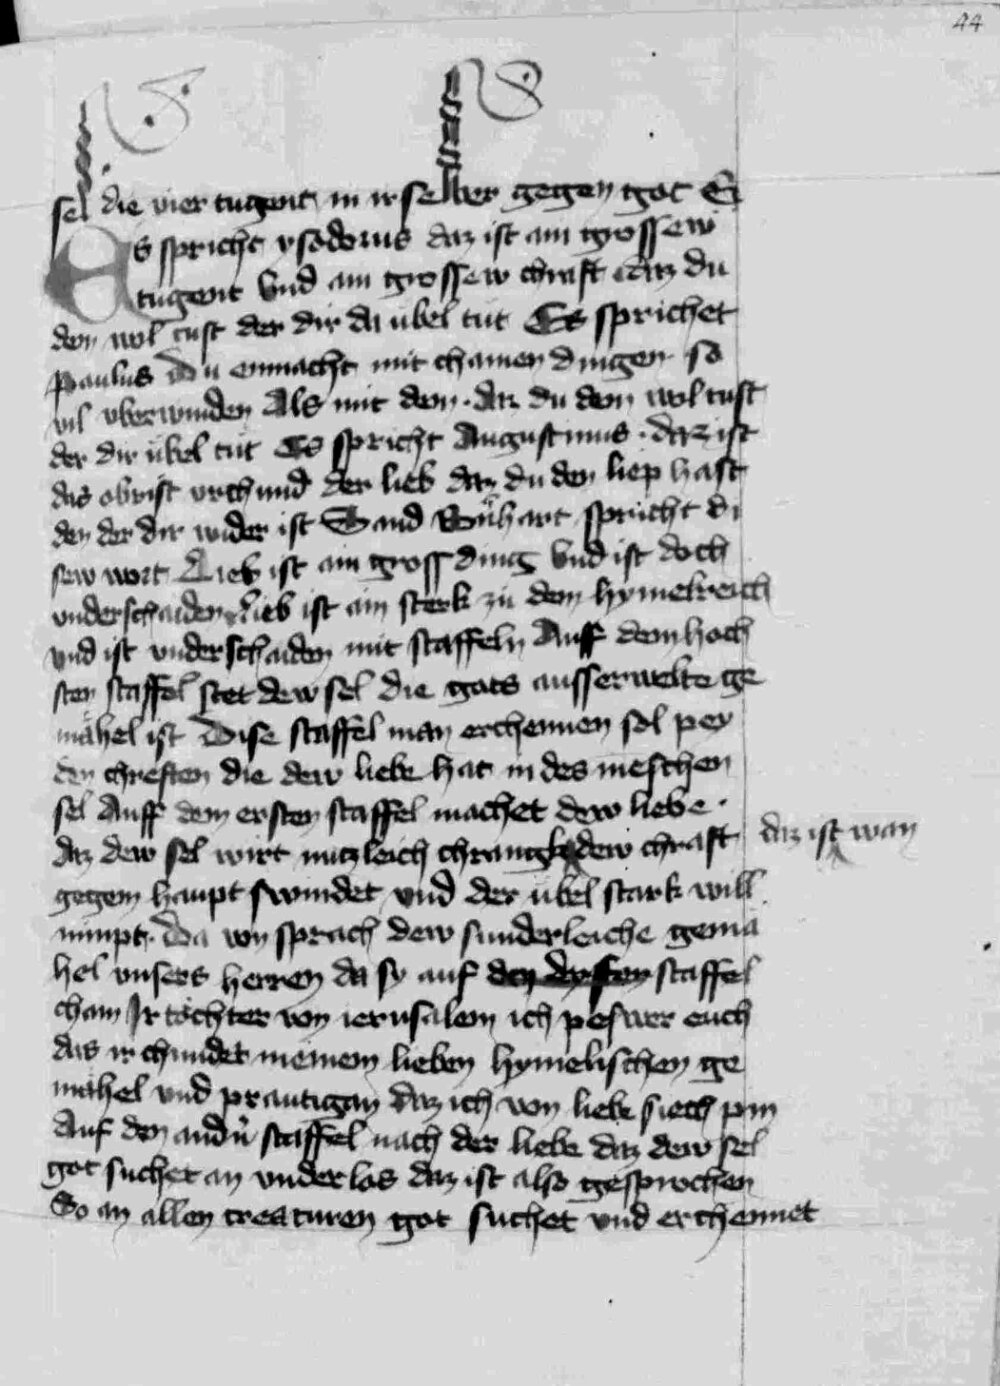 44
sel die vier tugent in ir selber gegen got Es
Es spricht ysodorus daz ist ain grossew
tugent vnd ain grossew chraft daz du
dem wol tust der dir da übel tut Es sprichet
Paulus Du enmacht mit chainen dingen so
vil vberwinden Als mit dem · daz du dem wol tust
der dir übel tut Es spricht Augustinus · daz ist
das obrist vrchund der lieb daz du den liep hast
den der dir wider ist Sand Bernhart spricht di
sew wort Lieb ist ain gross ding vnd ist doch
vnderschaiden lieb ist ain sterk zu dem hymelreich
vnd ist vnderschaiden mit staffeln Auff dem hoch
sten staffel stet dew sel die gots ausserwelte ge
mähel ist Dise staffel man erchennen sol pey
den chreften die dew liebe hat in des menschen
sel Auff dem ersten staffel machet dew liebe ·
daz dew sel wirt nutzleich chrangk dew chraft
daz ist wan
gegem haupt swindet vnd der übel stark will
nimpt · Da von sprach dew sunderleiche gemä
hel vnsers herren da sy auf den ersten staffel
cham Ir töchter von ierusalem ich peswer euch
das ir chundet meinem lieben hymelischen ge
mähel vnd prautigan daz ich von liebe siech pin
Auf den andern staffel nach der liebe daz dew sel
got suchet an vnderlas daz ist also gesprochen
So an allen creaturen got suchet vnd erchennet